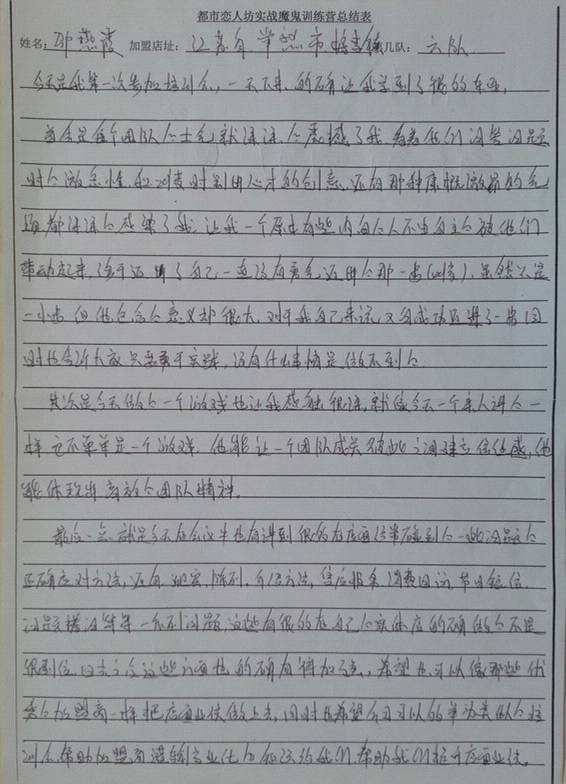 都市恋人坊实战魔鬼训练营总结表
姓名：邵燕霞 加盟店址：江苏省 市 几队：六队
今天是我第一次参加培训会，一天下来，的确让我学到了很多的东西，
首先是每个团队的士气就深深的震撼了我，看着他们回答问题
时的激急性，和列责时别出心才的创意，还有那种慷慨激昂的气
都深深的感染了我，让我一个原本有些内向的人不由自主的被他们
带动起来，终于迈出了自己一直没有勇气迈出的那一步，虽然只是
一小步 但他包含的意义却很大，对于我自己来说，又向成功迈进了一步 同
时也会 只要勇于实践，没有什么事情是做不到的
其次是今天做的一个游戏也让我感触很深，就像今天一个亲人讲的一
样 它不单单是一个游戏，他能让一个团队成员彼此之间建立信任感，他
能体现出 的团队精神。
最后一点就是今天在会议中也有讲到很多在店面经常碰到的一些问题的
正确应对方法，还有 陈列，介绍方法，售后服务 节日短信
问题等等一系列问题，这些有很多在自己的实体店的确做的不是
很到位 这些方面也的确有待加强，希望也可以像那些优
秀的加盟商一样把店面业绩做上去，同时也希望公司可以多举办类似的培
训会帮助加盟商灌输专业化的知识给我们，帮助我们提升店面业绩。